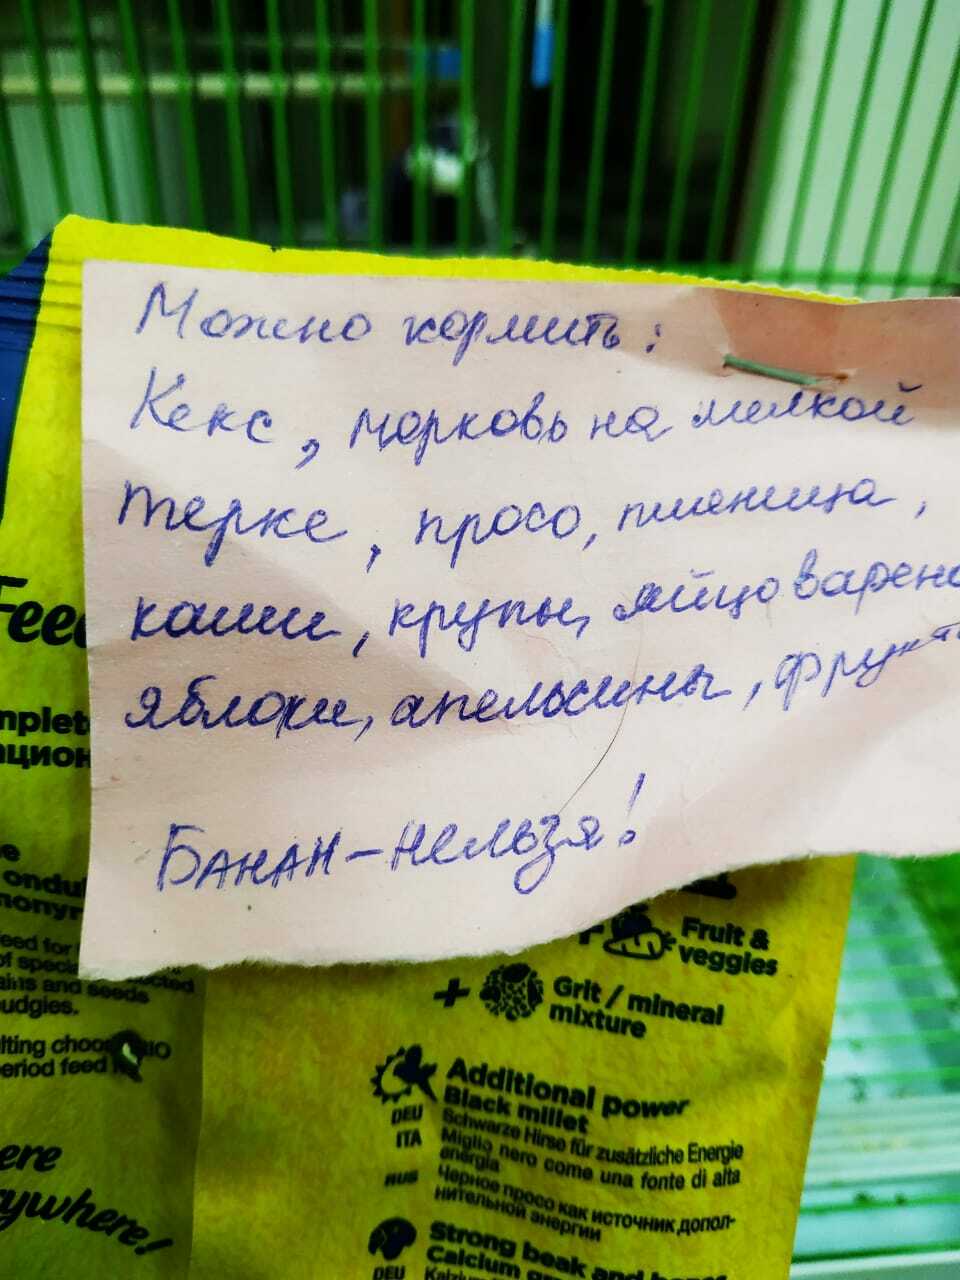 Можно кормить:
Кекс, морковь на мелкой
терке, просо, пшеница,
каши, крупы, яйцо варено
яблоки, апельсины, фрукт
Банан-нельзя!
Fee
nplet
ацион
e
ondul
nonyr
eed for
of speci cted
ains and seeds
udgies.
lting choo IO
eriod feed
ere
ywhere!
+ Fruit &
veggies
+ Grit / mineral
mixture
Additional power
Black millet
DEU Schwarze Hirse für zusätzliche Energie
ITA Miglio nero come una fonte di alta
energia
RUS Черное просо как источник допол-
нительной энергии
Strong beak and
Calcium
DEU